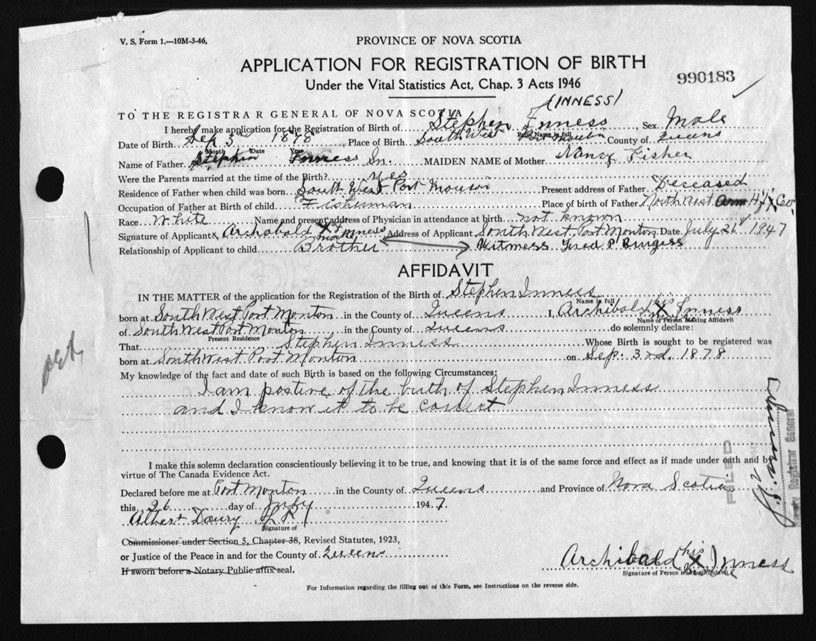 V. S. Form 1.—10M-3-46.
PROVINCE OF NOVA SCOTIA
APPLICATION FOR REGISTRATION OF BIRTH
Under the Vital Statistics Act, Chap. 3 Acts 1946
990183 ✓
TO THE REGISTRAR GENERAL OF NOVA SCOTIA
(INNESS)
I hereby make application for the Registration of Birth of Stephen Inness Sex Male
Name in full
Date of Birth Sep 3rd 1878 Place of Birth South West Port Mouton County of Queens
Month Date Year
Name of Father Stephen Inness Sr. MAIDEN NAME of Mother Nancy Fisher
Were the Parents married at the time of the Birth? yes
Residence of Father when child was born South West Port Mouton Present address of Father Deceased
Occupation of Father at Birth of child Fisherman Place of birth of Father North West Arm Hfx Co.
Race White Name and present address of Physician in attendance at birth not known
Signature of Applicant Archabald X Inness Address of Applicant South West Port Monton Date July 26 1947
mark
Relationship of Applicant to child Brother Witness Fred P. Burgess
AFFIDAVIT
IN THE MATTER of the application for the Registration of the Birth of Stephen Inness
Name in full
born at South West Port Monton in the County of Queens I, Archibald X Inness
Name of Person Making Affidavit
of South West Port Monton in the County of Queens do solemnly declare:
Present Residence
That Stephen Inness Whose Birth is sought to be registered was
born at South West Port Monton on Sep. 3rd 1878
My knowledge of the fact and date of such Birth is based on the following Circumstances:
I am postive of the birth of Stephen Inness
and I know it to be correct
I make this solemn declaration conscientiously believing it to be true, and knowing that it is of the same force and effect as if made under oath and by
virtue of The Canada Evidence Act.
Declared before me at Port Monton in the County of Queens and Province of Nova Scotia
this 26 day of July 1947
Albert Daury J P
Signature of
Commissioner under Section 5, Chapter 38, Revised Statutes, 1923,
or Justice of the Peace in and for the County of Queens
If sworn before a Notary Public affix seal.
his
Archibald X Inness
Signature of Person
For Information regarding the filling out of this Form, see Instructions on the reverse side.
FILED
Registrar General